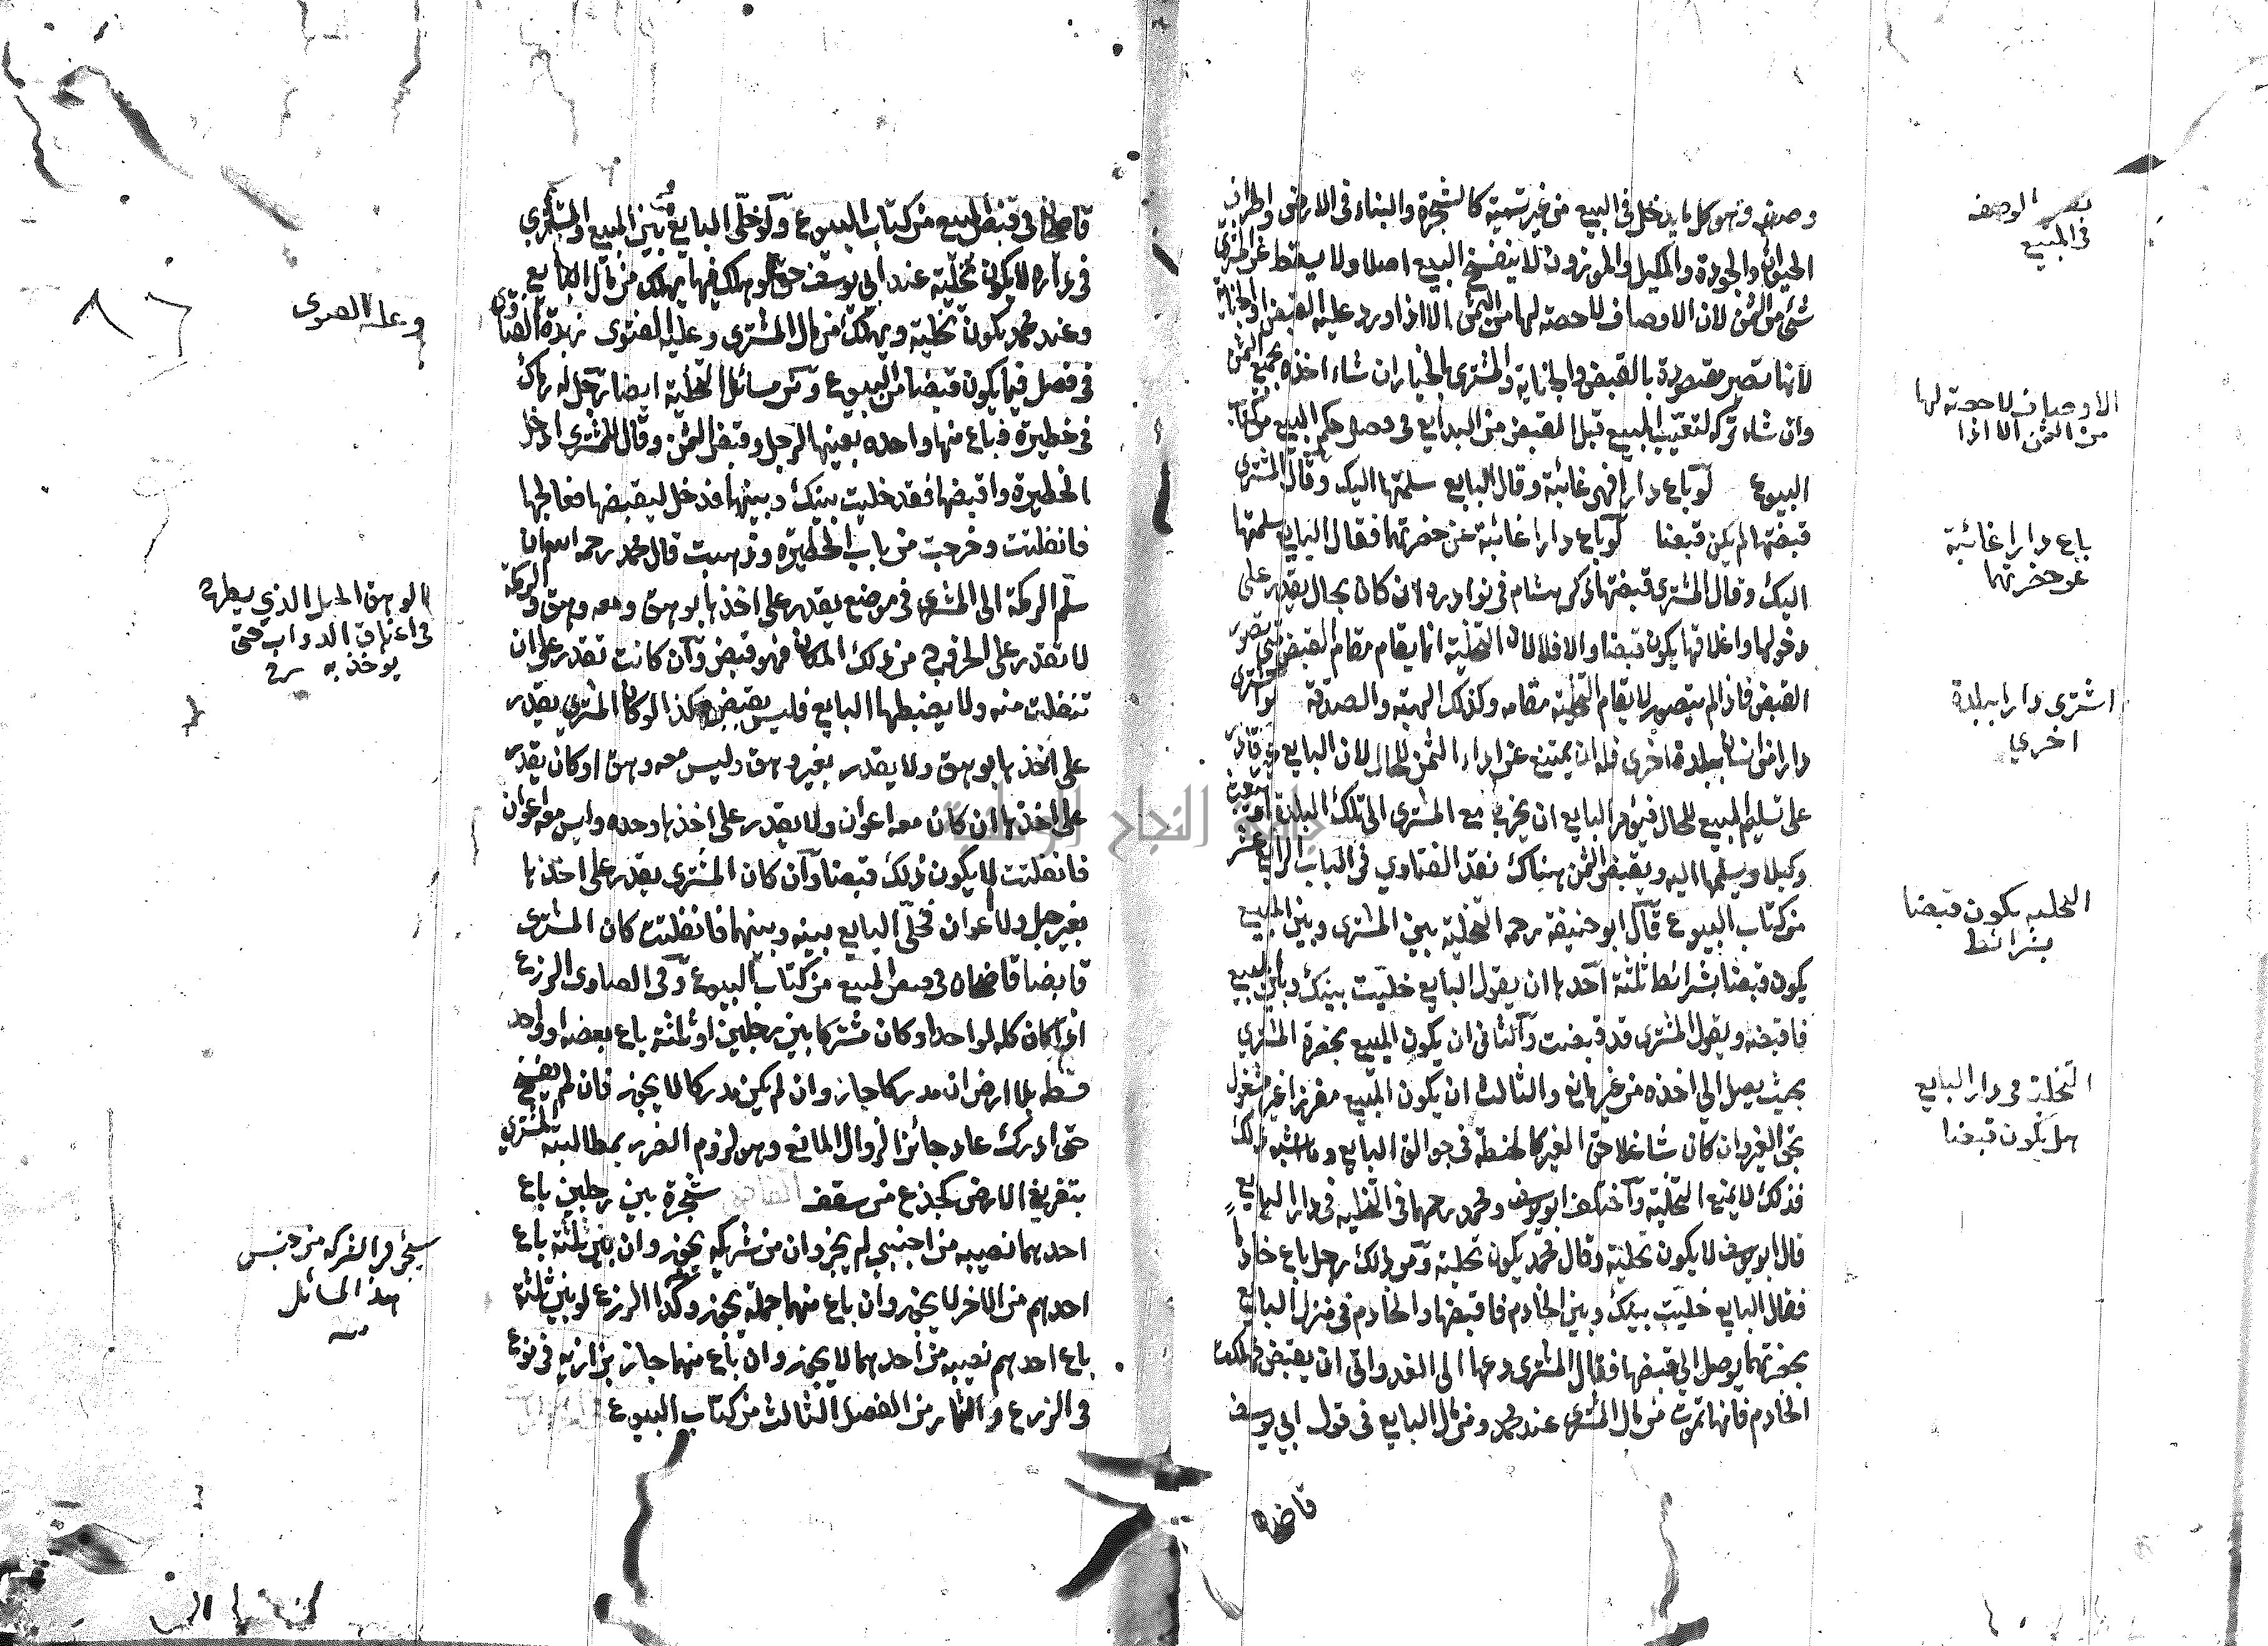 وصفته وهو كل ما يدخل فى البيع من غير تسمية كالشجرة والبناء فى الارض واطراف
الحيوان والجودة والمكيل والموزون لا ينفسخ البيع اصلا ولا يسقط عن المشترى
شئ من الثمن لان الاوصاف لا حصة لها من الثمن الا اذا ورد عليه القبض او الجناية
لانها تصير مقصودة بالقبض والجناية والمشترى بالخيار ان شاء اخذه بجميع الثمن
وان شاء تركه لتعيب المبيع قبل القبض من البدايع فى فصل حكم البيع من كتاب
البيوع لو باع دارا فهى غائبة وقال البايع سلمتها اليك وقال المشترى
قبضتها لم يكن قبضا لو باع دارا غائبة عن حضرتهما فقال البايع سلمتها
اليك وقال المشترى قبضتها ذكر هشام فى نوادره ان كان بحال يقدر على
دخولها واغلاقها يكون قبضا والا فلا لان التخلية انما يقام مقام القبض متى تصور
القبض فاذا لم يتصور لا يقام التخلية مقامه وكذلك الهبة والصدقة لو اشترى
دارا من انسان ببلدة اخرى فله ان يمتنع عن اداء الثمن للحال لان البايع غير قادر
على تسليم المبيع للحال فيؤمر البايع ان يخرج مع المشترى الى تلك البلدة او يبعث
وكيلا ويسلمها اليه ويقبض الثمن هناك نقد الفتاوي فى الباب الرابع عشر
من كتاب البيوع قال ابو حنيفة رحمه التخلية بين المشترى وبين المبيع
يكون قبضا بشرائط ثلثة احدها ان يقول البايع خليت بينك وبين المبيع
فاقبضه ويقول المشترى قد قبضت والثانى ان يكون المبيع بحضرة المشتري
بحيث يصل الى اخذه من غير مانع والثالث ان يكون المبيع مفرزا غير مشغول
بحق الغير وان كان شاغلا حق الغير كالحنطة فى جوالق البايع وما اشبه ذلك
فذلك لا يمنع التخلية واختلف ابو يوسف ومحمد رحمهما فى التخلية فى دار البايع
قال ابو يوسف لا يكون تخلية وقال محمد يكون تخلية وهو ذلك رجل باع خادما
فقال البايع خليت بينك وبين الخادم فاقبضها والخادم فى منزل البايع
بحضرتهما يوصل الى قبضها فقال المشترى دعها الى الغد وابى ان يقبض فهلكت
الخادم فانها تموت من مال المشترى عند محمد ومن مال البايع فى قول ابى يوسف
قاضيخان
الوصف
فى المبيع
الاوصاف لا حصة لها
من الثمن الا اذا
باع دارا غائبة
عن حضرتهما
اشترى دارا ببلدة
اخري
التخلية يكون قبضا
بشرائط
التخلية فى دار البايع
هل يكون قبضا
قاضيخان فى قبض المبيع من كتاب البيوع ولو خلى البايع بين المبيع والمشتري
فى داره لا يكون تخلية عند ابى يوسف حتى لو هلك فيها يهلك من مال البايع
وعند محمد يكون تخلية ويهلك من مال المشترى وعليه الفتوى زبدة الفتاوى
فى فصل فيما يكون قبضا من البيوع ومن مسائل التخلية ايضا رجل له رماك
فى حظيرة فباع منها واحدة بعينها لرجل وقبض الثمن وقال للمشترى ادخل
الحظيرة واقبضها فقد خليت بينك وبينها فدخل ليقبضها فعالجها
فانفلتت وخرجت من باب الحظيرة وذهبت قال محمد رحمه الله ان
سلم الرمكة الى المشترى فى موضع يقدر على اخذها بوهق ومعه وهق والرمكة
لا تقدر على الخروج من ذلك المكان فهو قبض وان كانت تقدر على ان
تنفلت منه ولا يضبطها البايع فليس بقبض وكذا لو كان المشترى يقدر
على اخذها بوهق ولا يقدر بغير وهق وليس معه وهق او كان يقدر
على اخذها ان كان معه اعوان ولا يقدر على اخذها وحده وليس معه اعوان
فانفلتت لا يكون ذلك قبضا وان كان المشترى يقدر على اخذها
بغير حبل ولا اعوان فخلى البايع بينه وبينها فانفلتت كان المشترى
قابضا قاضيخان فى قبض المبيع من كتاب البيوع وفى الفتاوى الزرع
اذا كان كله لواحد او كان مشتركا بين رجلين او ثلثة باع بعضه او واحد
قسطه بلا ارض ان مدركا جاز وان لم يكن مدركا لا يجوز فان لم يفسخ
حتى ادرك عاد جائزا لزوال المانع وهو لزوم الضرر بمطالبة المشتري
بتفريغ الارض كجذع من سقف شجرة بين رجلين باع
احدهما نصيبه من اجنبي لم يجز وان من شريكه يجوز وان بين ثلثة باع
احدهم من الاخر لا يجوز وان باع منهما جملة يجوز وكذا الزرع لو بين ثلثة
باع احدهم نصيبه من احدهما لا يجوز وان باع منهما جاز بزازيه فى نوع
فى الزرع والثمار من الفصل الثالث من كتاب البيوع
وعليه الفتوى
٨٦
الوهق الحبل الذي يطرح
فى اعناق الدواب حتى
يوخذ به
من جنس
هذا المسائل
منه